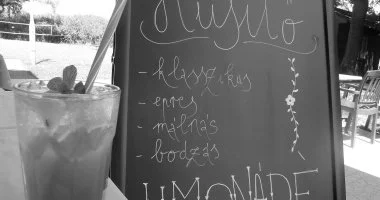 Hűsítő
- klasszikus
- epres
- málnás
- bodzás
LIMONÁDÉ